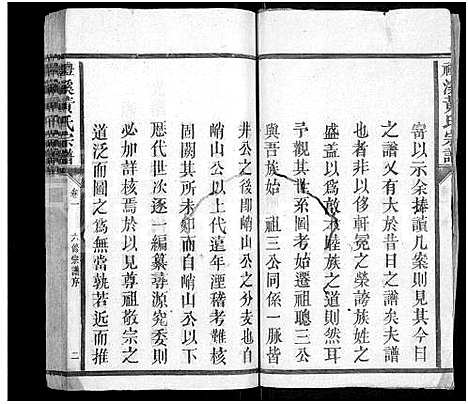 寄以示余捧讀几案則見其今日
之譜又有大於昔日之譜矣夫譜
也者非以侈軒冕之榮誇族姓之
盛蓋以為敬宗睦族之道則然耳
予觀其世系圖考僊遷祖聰三公
與吾族始 祖三公同係一脉皆
井公之後即峭山公之分支也自
峭山公以上代遠年湮稽考難核
固闕其所未知而自峭山公以下
歷代世次逐一編纂尋源究委則
必加詳核焉於以見尊祖敬宗之
道泛而圖之為無當孰若近而推
禮溪黃氏宗譜
卷一
六修宗譜序
二
禮溪黃氏宗譜